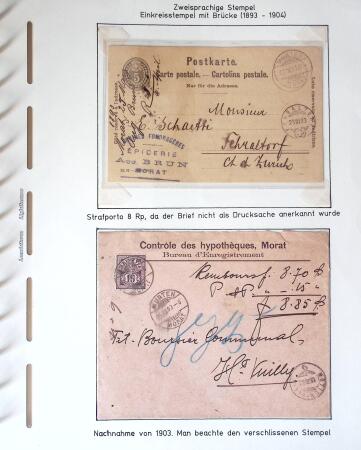 Zweisprachige Stempel
Einkreisstempel mit Brücke (1893 - 1904)
Postkarte.
Carte postale. — Cartolina postale.
Nur für die Adresse.
Monsieur
E. Schaetti
Fehraltorf
Ct. d. Zurich
FROMAGERES
EPICERIE
AUG. BRUN
MORAT
Strafporto 8 Rp, da der Brief nicht als Drucksache anerkannt wurde
Contrôle des hypothèques, Morat
Bureau d'Enregistrement
15
Remboursf. 8.70
" - 15 "
f. 8.85
MURTEN
MORAT
Tit. Boursier Communal
Ht Vuilly
Nachnahme von 1903. Man beachte den verschlissenen Stempel